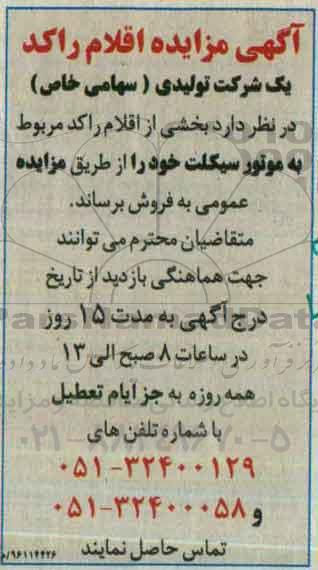 آگهی مزایده اقلام راکد
یک شرکت تولیدی ( سهامی خاص)
در نظر دارد بخشی از اقلام راکد مربوط
به موتور سیکلت خود را از طریق مزایده
عمومی به فروش برساند.
متقاضیان محترم می توانند
جهت هماهنگی بازدید از تاریخ
درج آگهی به مدت ۱۵ روز
در ساعات ۸ صبح الی ۱۳
همه روزه به جز ایام تعطیل
با شماره تلفن های
۰۵۱-۳۲۴۰۰۱۲۹
و ۰۵۱-۳۲۴۰۰۰۵۸
تماس حاصل نمایند
۹۶۱۱۴۴۲۶/م